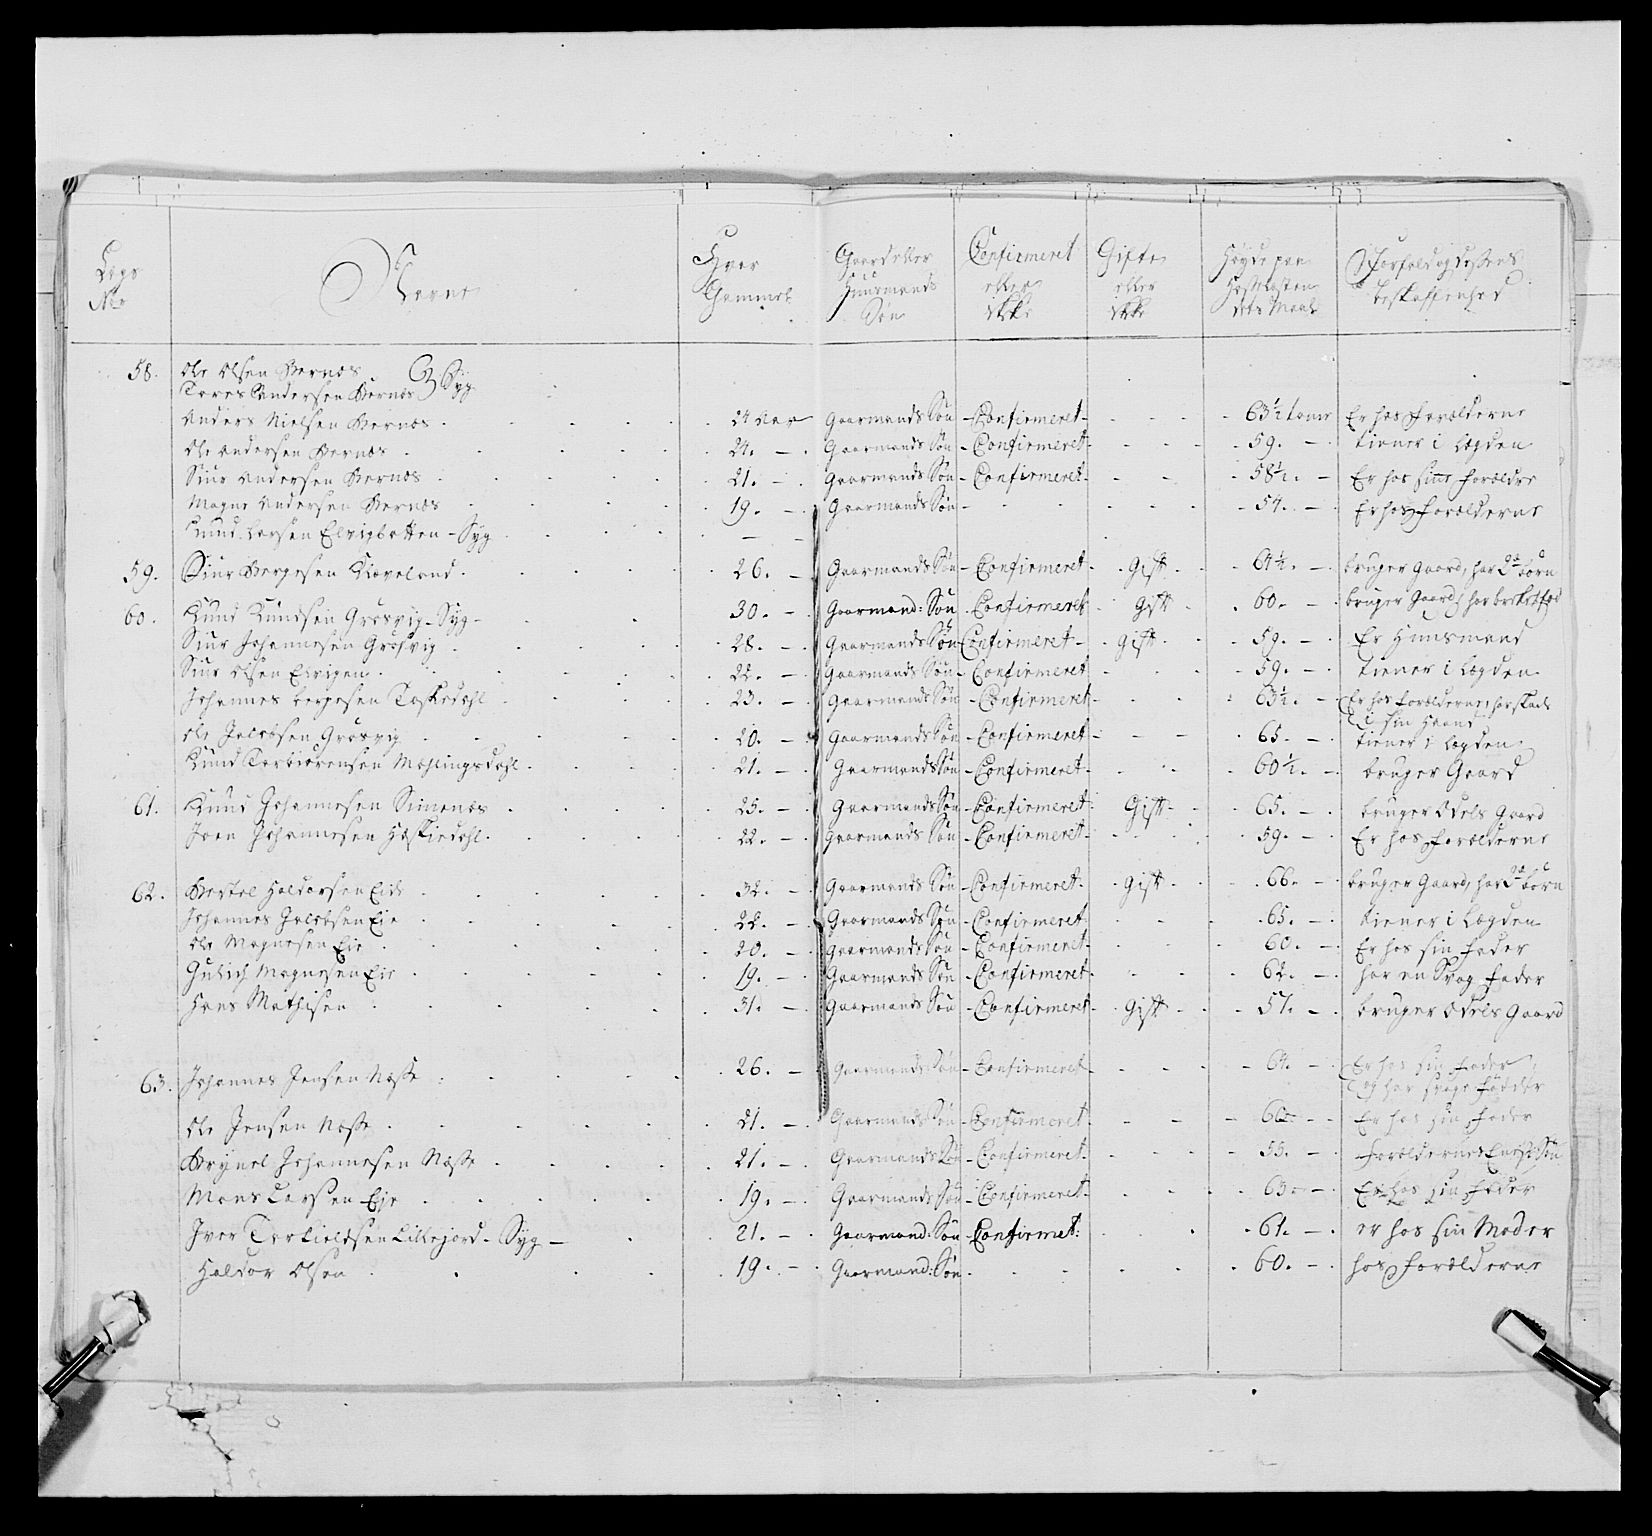 Legs No
Navne
Hvor Gammel
Gaard eller Huusmands Søn
Confirmeret eller ikke
Gifte eller ikke
Høyde paa Hosselæsten dito Maal
Forhold og dessens beskaffenhed
58. Ole Olsen Bernæs
Tores Andersen Bernæs Syg
Anders Nielsen Bernæs 24 Aar Gaarmands Søn Confirmeret 63½ tomr Er hos Forælderne
Ole Andersen Bernæs 24. Gaarmands Søn Confirmeret 59. tiener i Legden
Siur Andersen Bernæs 21. Gaarmands Søn Confirmeret 58½. Er hos sine Forældre
Magne Andersen Bernæs 19. Gaarmands Søn 54. Er hos Forælderne
Knud Larsen Elvigbotten Syg
59. Siur Børgesen Kleveland 26. Gaarmands Søn Confirmeret Gift 64½. bruger Gaard, har 2de børn
60. Knud Knudsen Grøsvig Syg 30. Gaarmand: Søn Confirmeret Gift 60. bruger Gaard, har
Siur Johannesen Grøsvig 28. Gaarmands Søn Confirmeret gift 59. Er Huusmand
Siur Olsen Elvigen 22. Gaarmands Søn Confirmeret 59. tiener i Legden
Johannes Børgesen Taskedahl 23. Gaarmands Søn Confirmeret 63½. Er hos Forælderne, har skade
i sin Haand
Ole Jacobsen Grøsvig 20. Gaarmands Søn Confirmeret 65. tiener i Legden
Knud Torbiørensen Mæhlingsdahl 21. Gaarmands Søn Confirmeret 60½. bruger Gaard
61. Knud Johannesen Simenæs 25. Gaarmands Søn Confirmeret Gift 65. bruger Odels Gaard
Joen Johannesen Hæskiedahl 22. Gaarmands Søn Confirmeret 59. Er hos Forælderne
62. Bertel Haldorsen Eide 32. Gaarmands Søn Confirmeret gift 66. bruger Gaard, har 3de børn
Johannes Jacobsen Eie 22. Gaarmands Søn Confirmeret 65. tiener i Legden
Ole Magnesen Eie 20. Gaarmands Søn Confirmeret 60. Er hos sin Fader
Gulich Magnesen Eie 19. Gaarmands Søn Confirmeret 62. har en Svag Fader
Hans Mathisen 31. Gaarmands Søn Confirmeret Gift 57. bruger Odels Gaard
63. Johannes Jensen Næsse 26. Gaarmands Søn Confirmeret 64. Er hos sin Fader
og har svage Fødder
Ole Jensen Næsse 21. Gaarmands Søn Confirmeret 60. Er hos sin Fader
Brynel Johannesen Næsse 21. Gaarmands Søn Confirmeret 55. Forældernes Eniste Søn
Mons Larsen Eje 19. Gaarmands Søn Confirmeret 63. Er hos sin Fader
Iver Torkieldsen Lillejord Syg 21. Gaarmand: Søn Confirmet: 61. er hos sin Moder
Haldor Olsen 19. Gaarmand: Søn 60. hos Forælderne